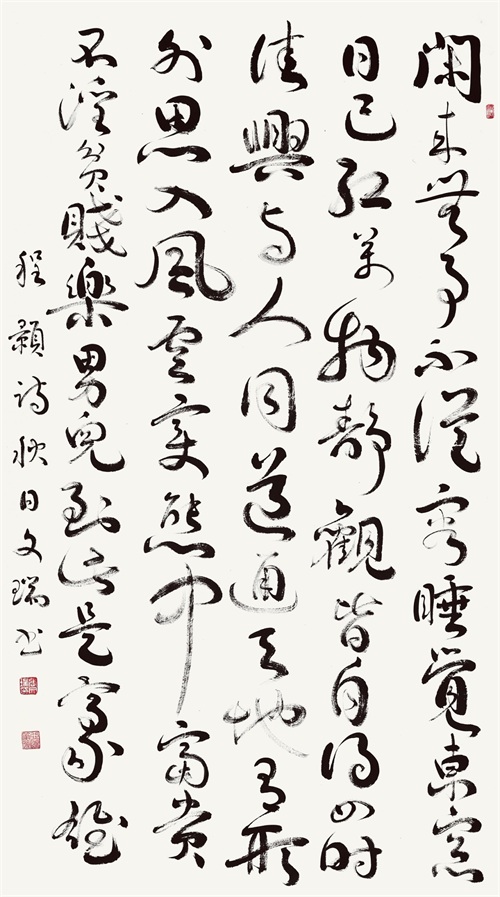 閑來無事不從容睡覺東窗
日已紅萬物靜觀皆自得四時
佳興与人同道通天地有形
外思入風雲變態中富貴
不淫貧賤樂男兒到此是豪雄
程顥詩秋日文瑞書